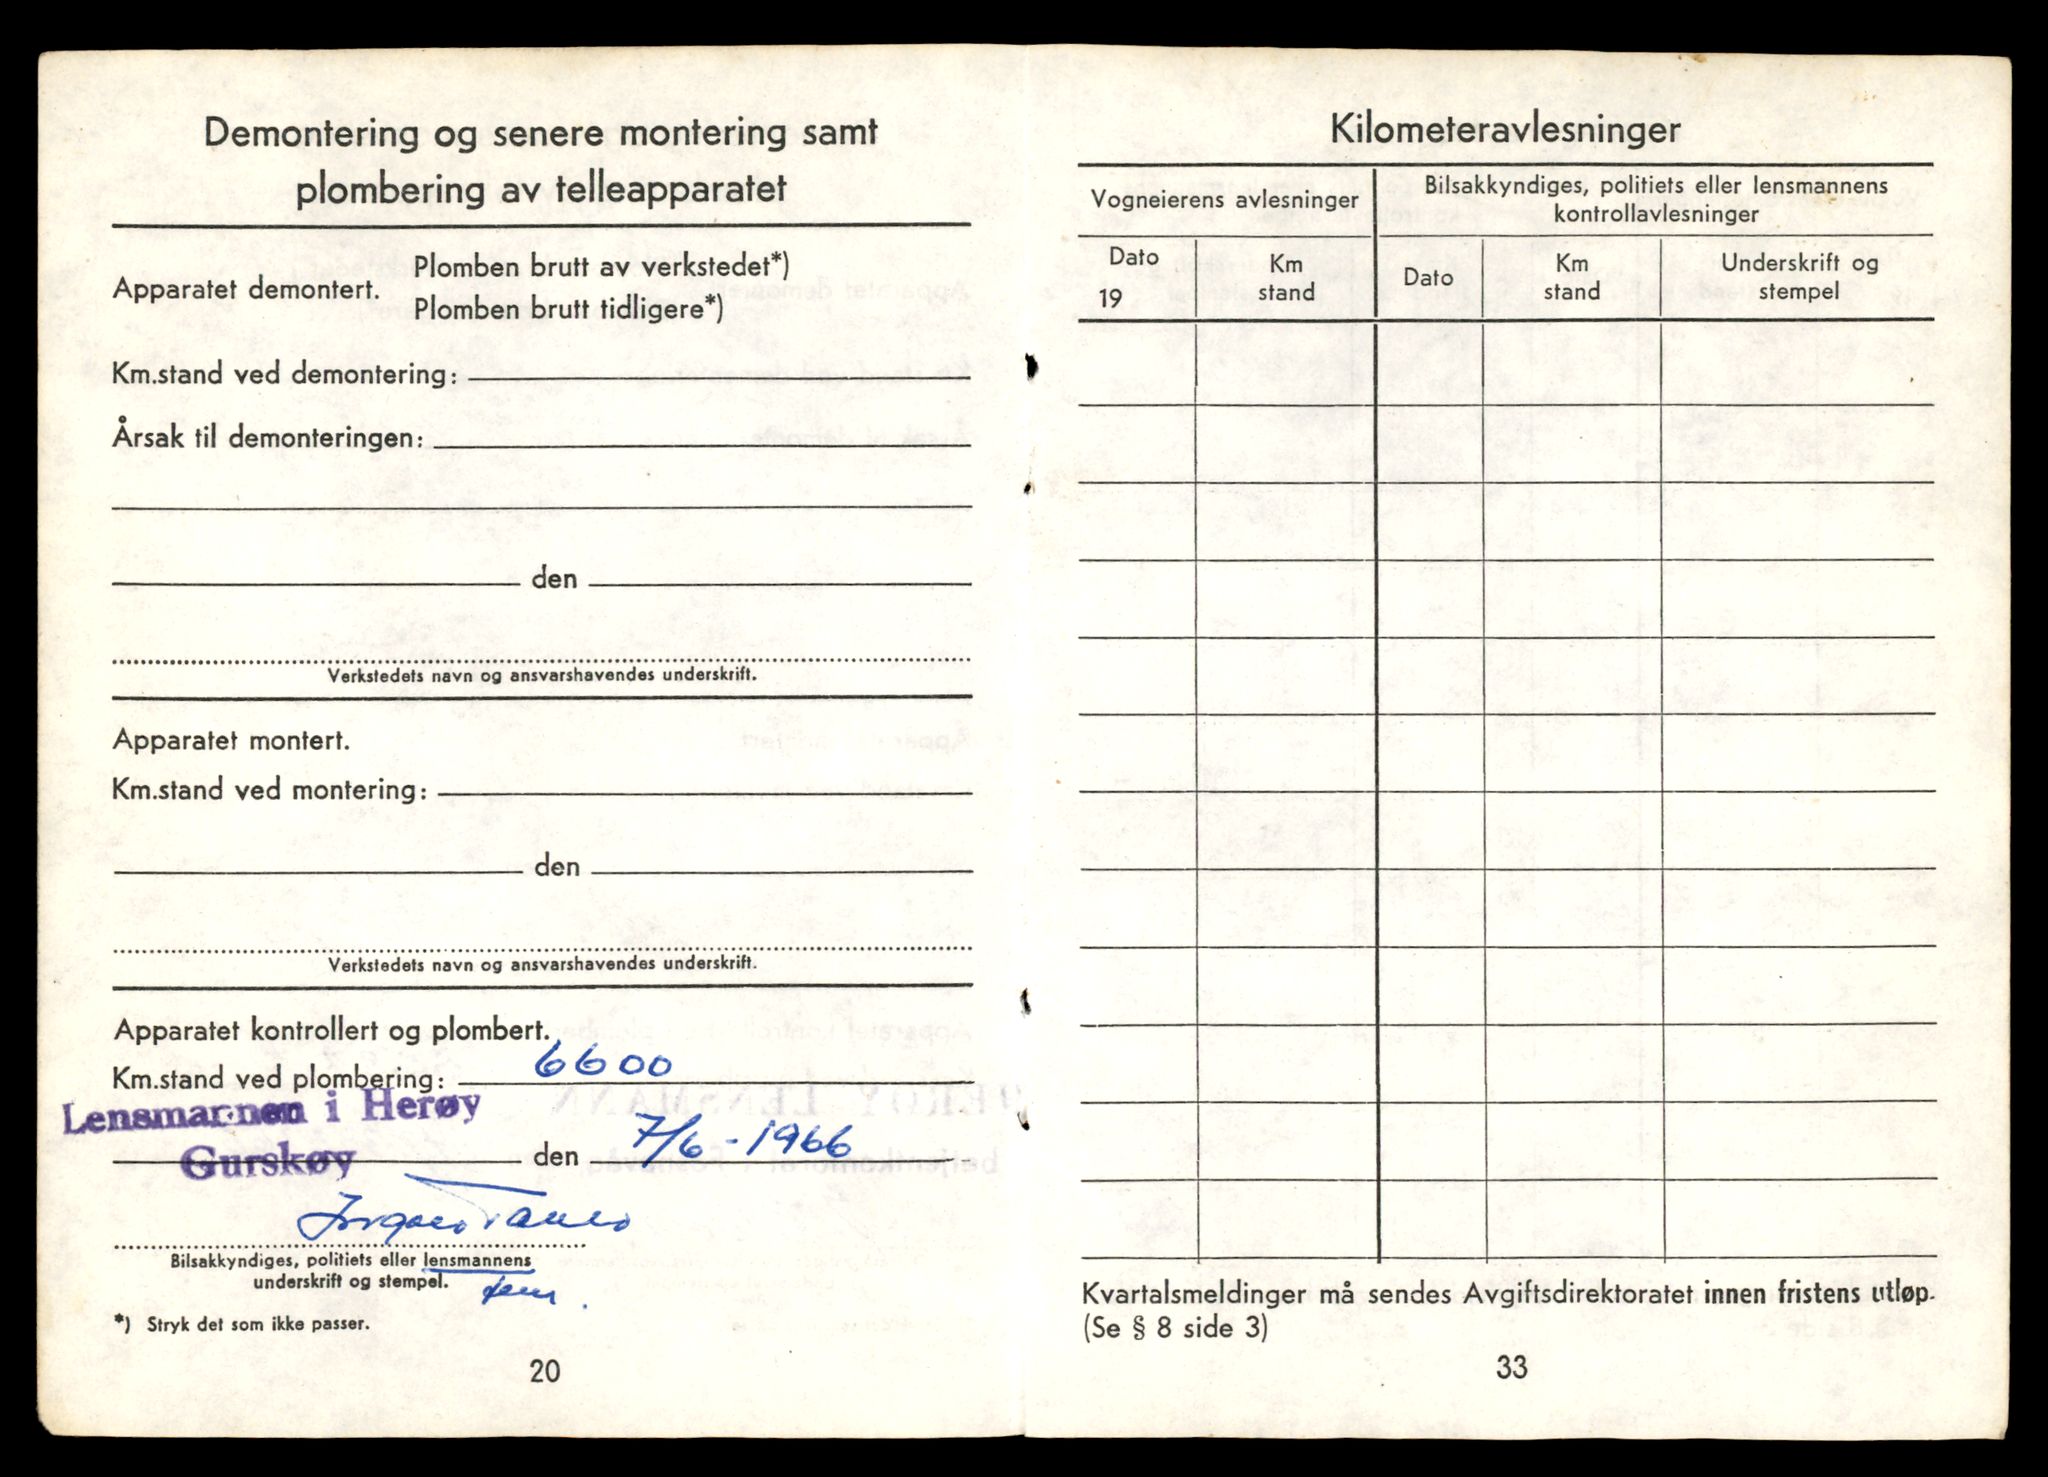 Demontering og senere montering samt
plombering av telleapparatet
Apparatet demontert.
Plomben brutt av verkstedet*)
Plomben brutt tidligere*)
Km.stand ved demontering:
Årsak til demonteringen:
den
Verkstedets navn og ansvarshavendes underskrift.
Apparatet montert.
Km.stand ved montering:
den
Verkstedets navn og ansvarshavendes underskrift.
Apparatet kontrollert og plombert.
Km.stand ved plombering: 6600
Lensmannen i Herøy
Gurskøy den 7/6-1966
Bilsakkyndiges, politiets eller lensmannens
underskrift og stempel.
*) Stryk det som ikke passer.
20
Kilometeravlesninger
Vogneierens avlesninger
Bilsakkyndiges, politiets eller lensmannens
kontrollavlesninger
Dato
19
Km
stand
Dato
Km
stand
Underskrift og
stempel
Kvartalsmeldinger må sendes Avgiftsdirektoratet innen fristens utløp.
(Se § 8 side 3)
33